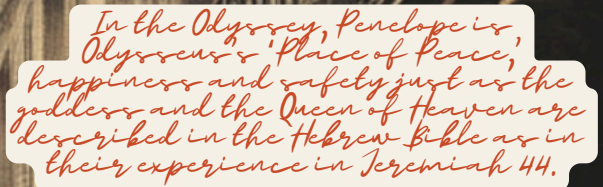 In the Odyssey, Penelope is
Odysseus's 'Place of Peace,'
happiness and safety just as the
goddess and the Queen of Heaven are
described in the Hebrew Bible as in
their experience in Jeremiah 44.